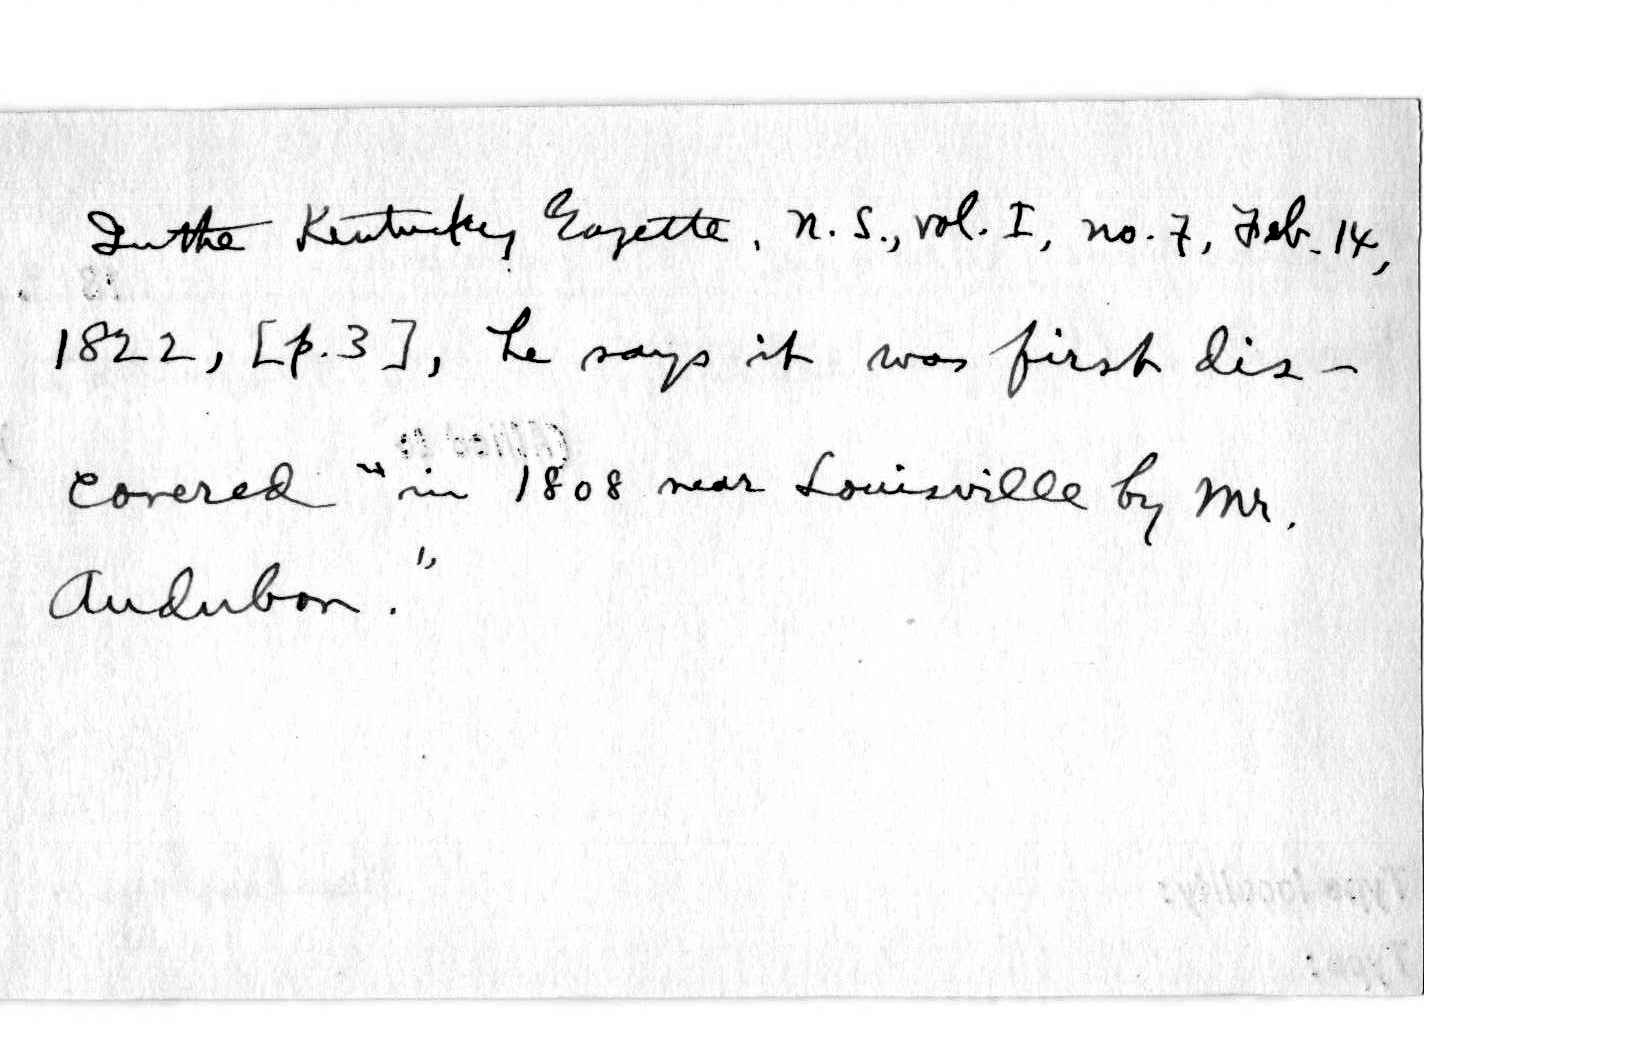 In the Kentucky Gazette, n.s., vol. I, no. 7, Feb. 14,
1822, [p.3], he says it was first dis-
covered "in 1808 near Louisville by Mr.
Audubon."